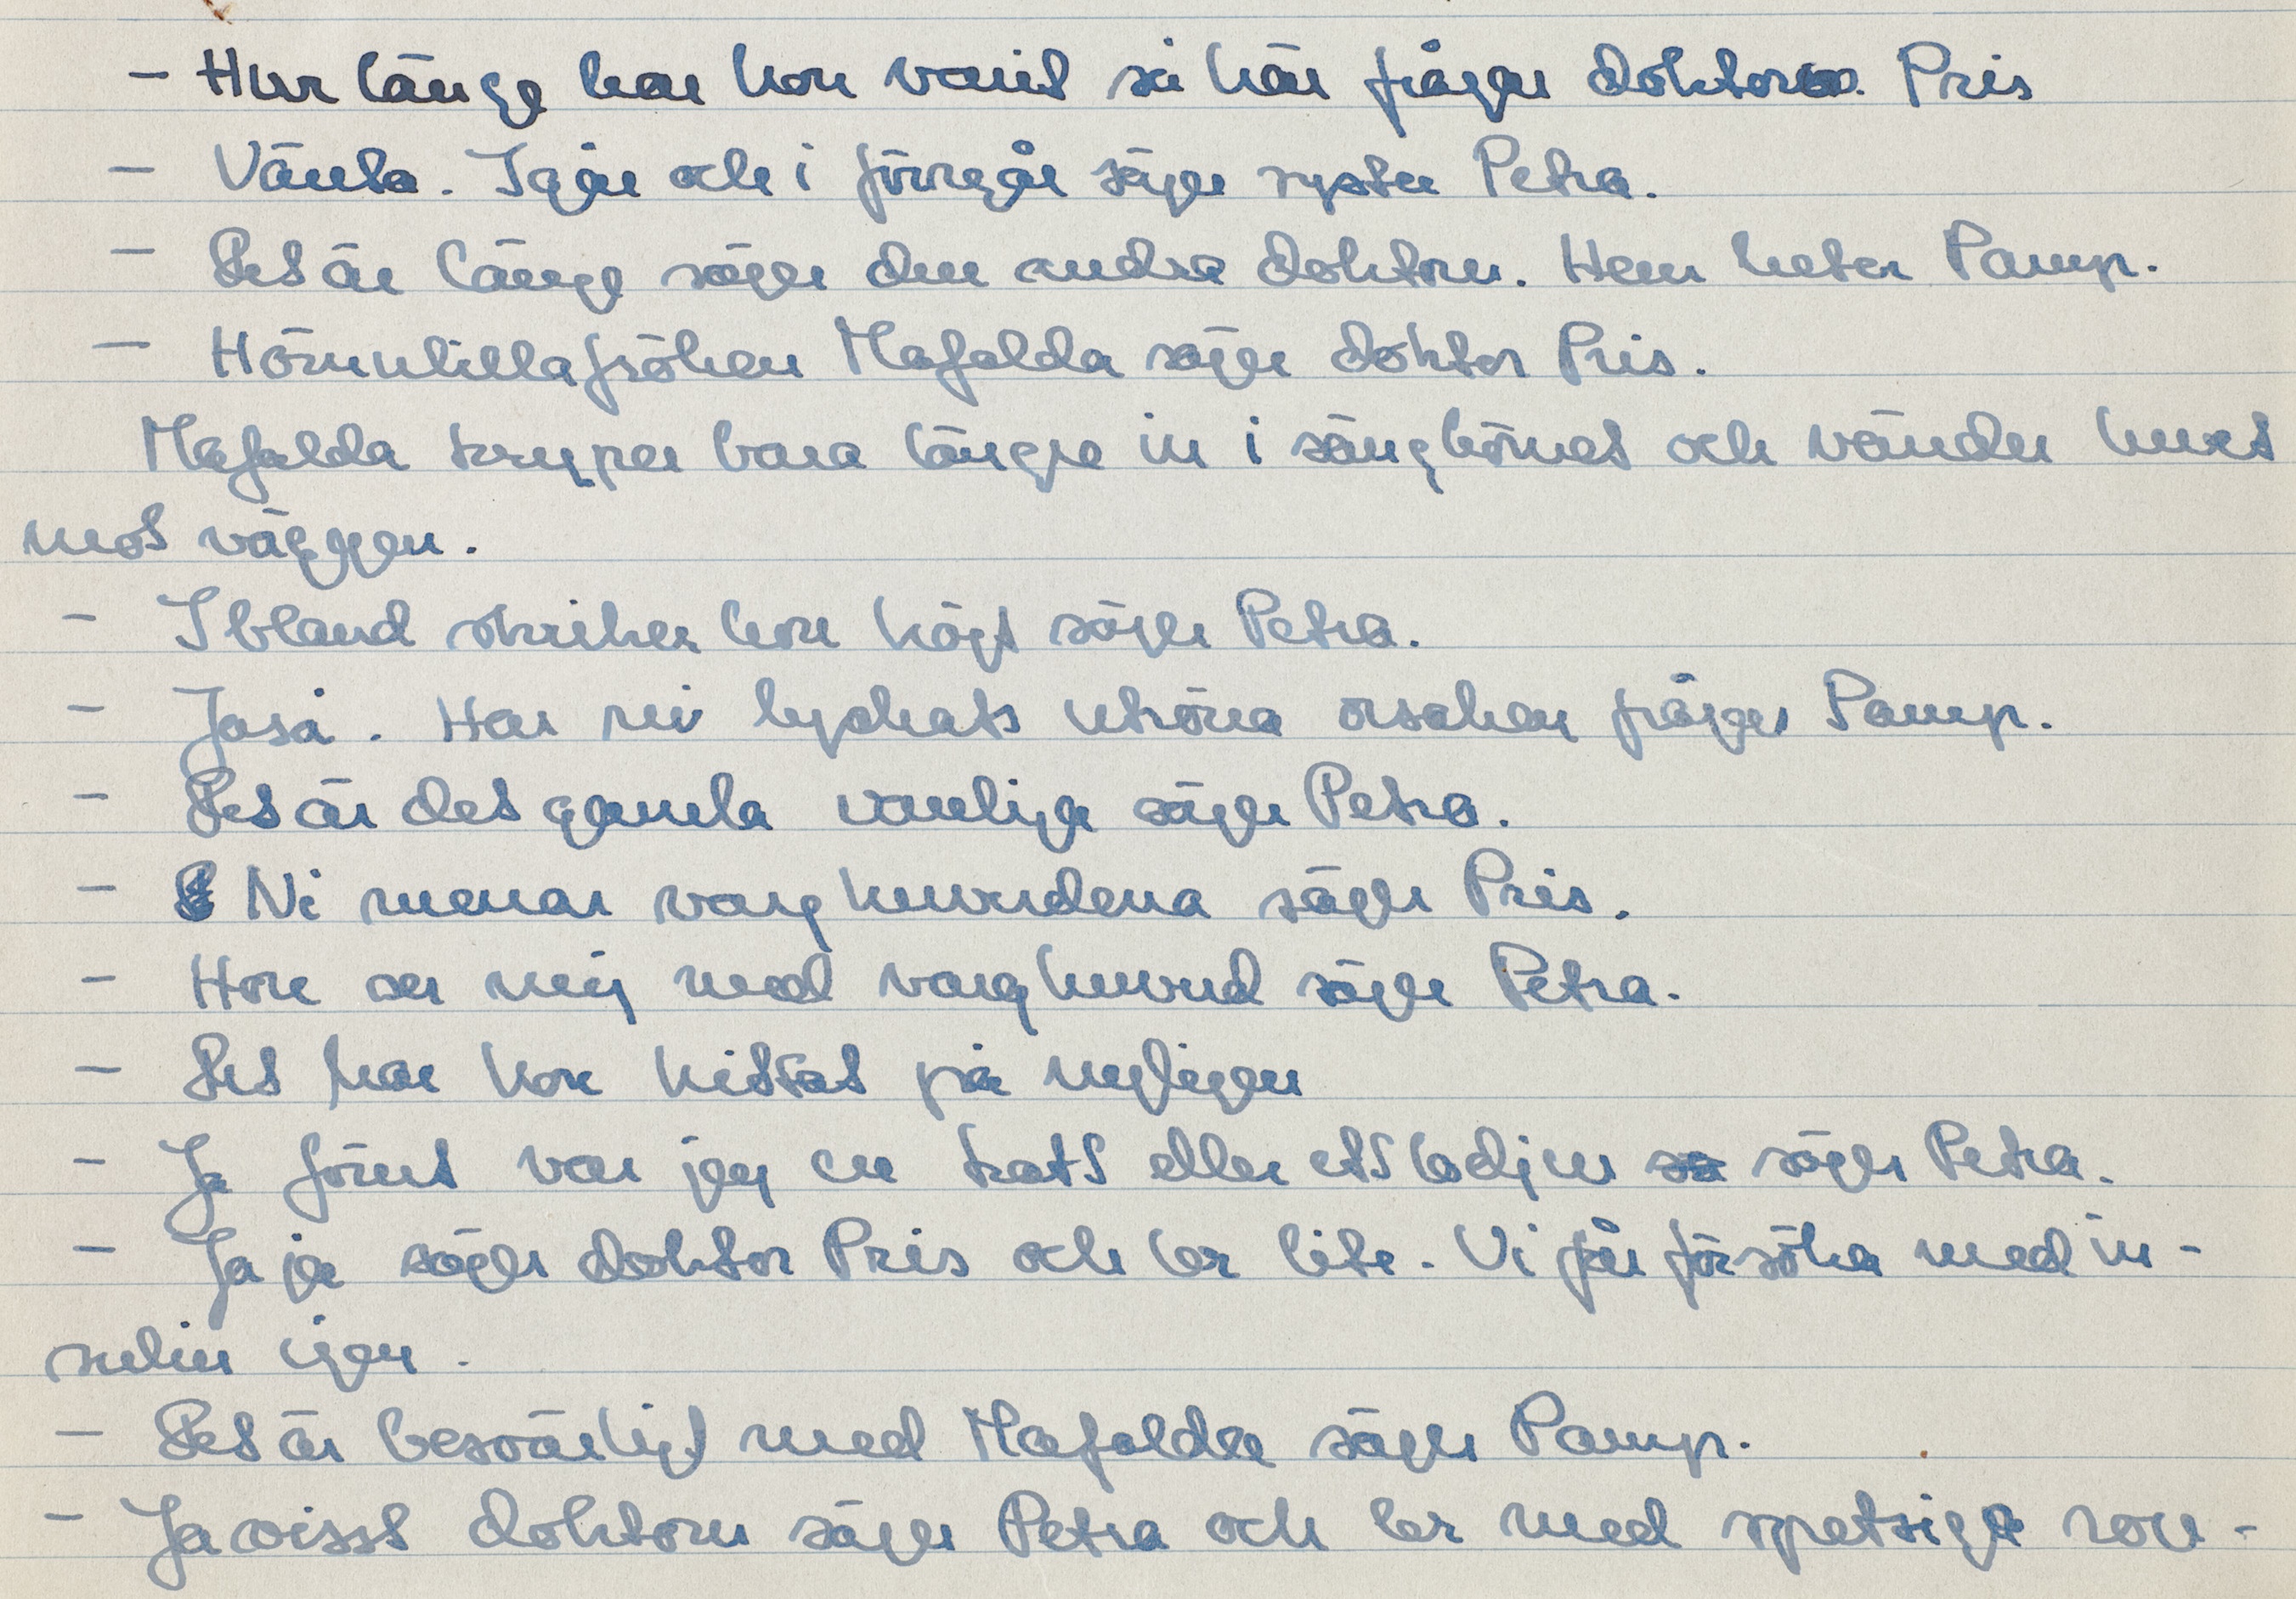 - Hur länge har hon varit så här frågar doktor Pris
- Vänta. Igår och i förrgår säger syster Petra.
- Det är länge säger den andra doktorn. Han heter Pamp.
- Hörnulillafröken Mafalda säger doktor Pris.
Mafalda kryper bara längre in i sänghörnet och vänder huvet
mot väggen.
- Ibland skriker hon högt säger Petra.
- Jaså. Har ni lyckats utröna orsaken frågar Pamp.
- Det är det gamla vanliga säger Petra.
- Ni menar varghuvudena säger Pris.
- Hon ser mig med varghuvud säger Petra.
- Det har hon hittat på nyligen
- Ja förut var jag en katt eller ett lodjur säger Petra.
- Ja ja säger doktor Pris och ler lite. Vi får försöka med in-
sulin igen.
- Det är besvärligt med Mafalda säger Pamp.
- Ja visst doktorn säger Petra och ler med spetsiga rov-